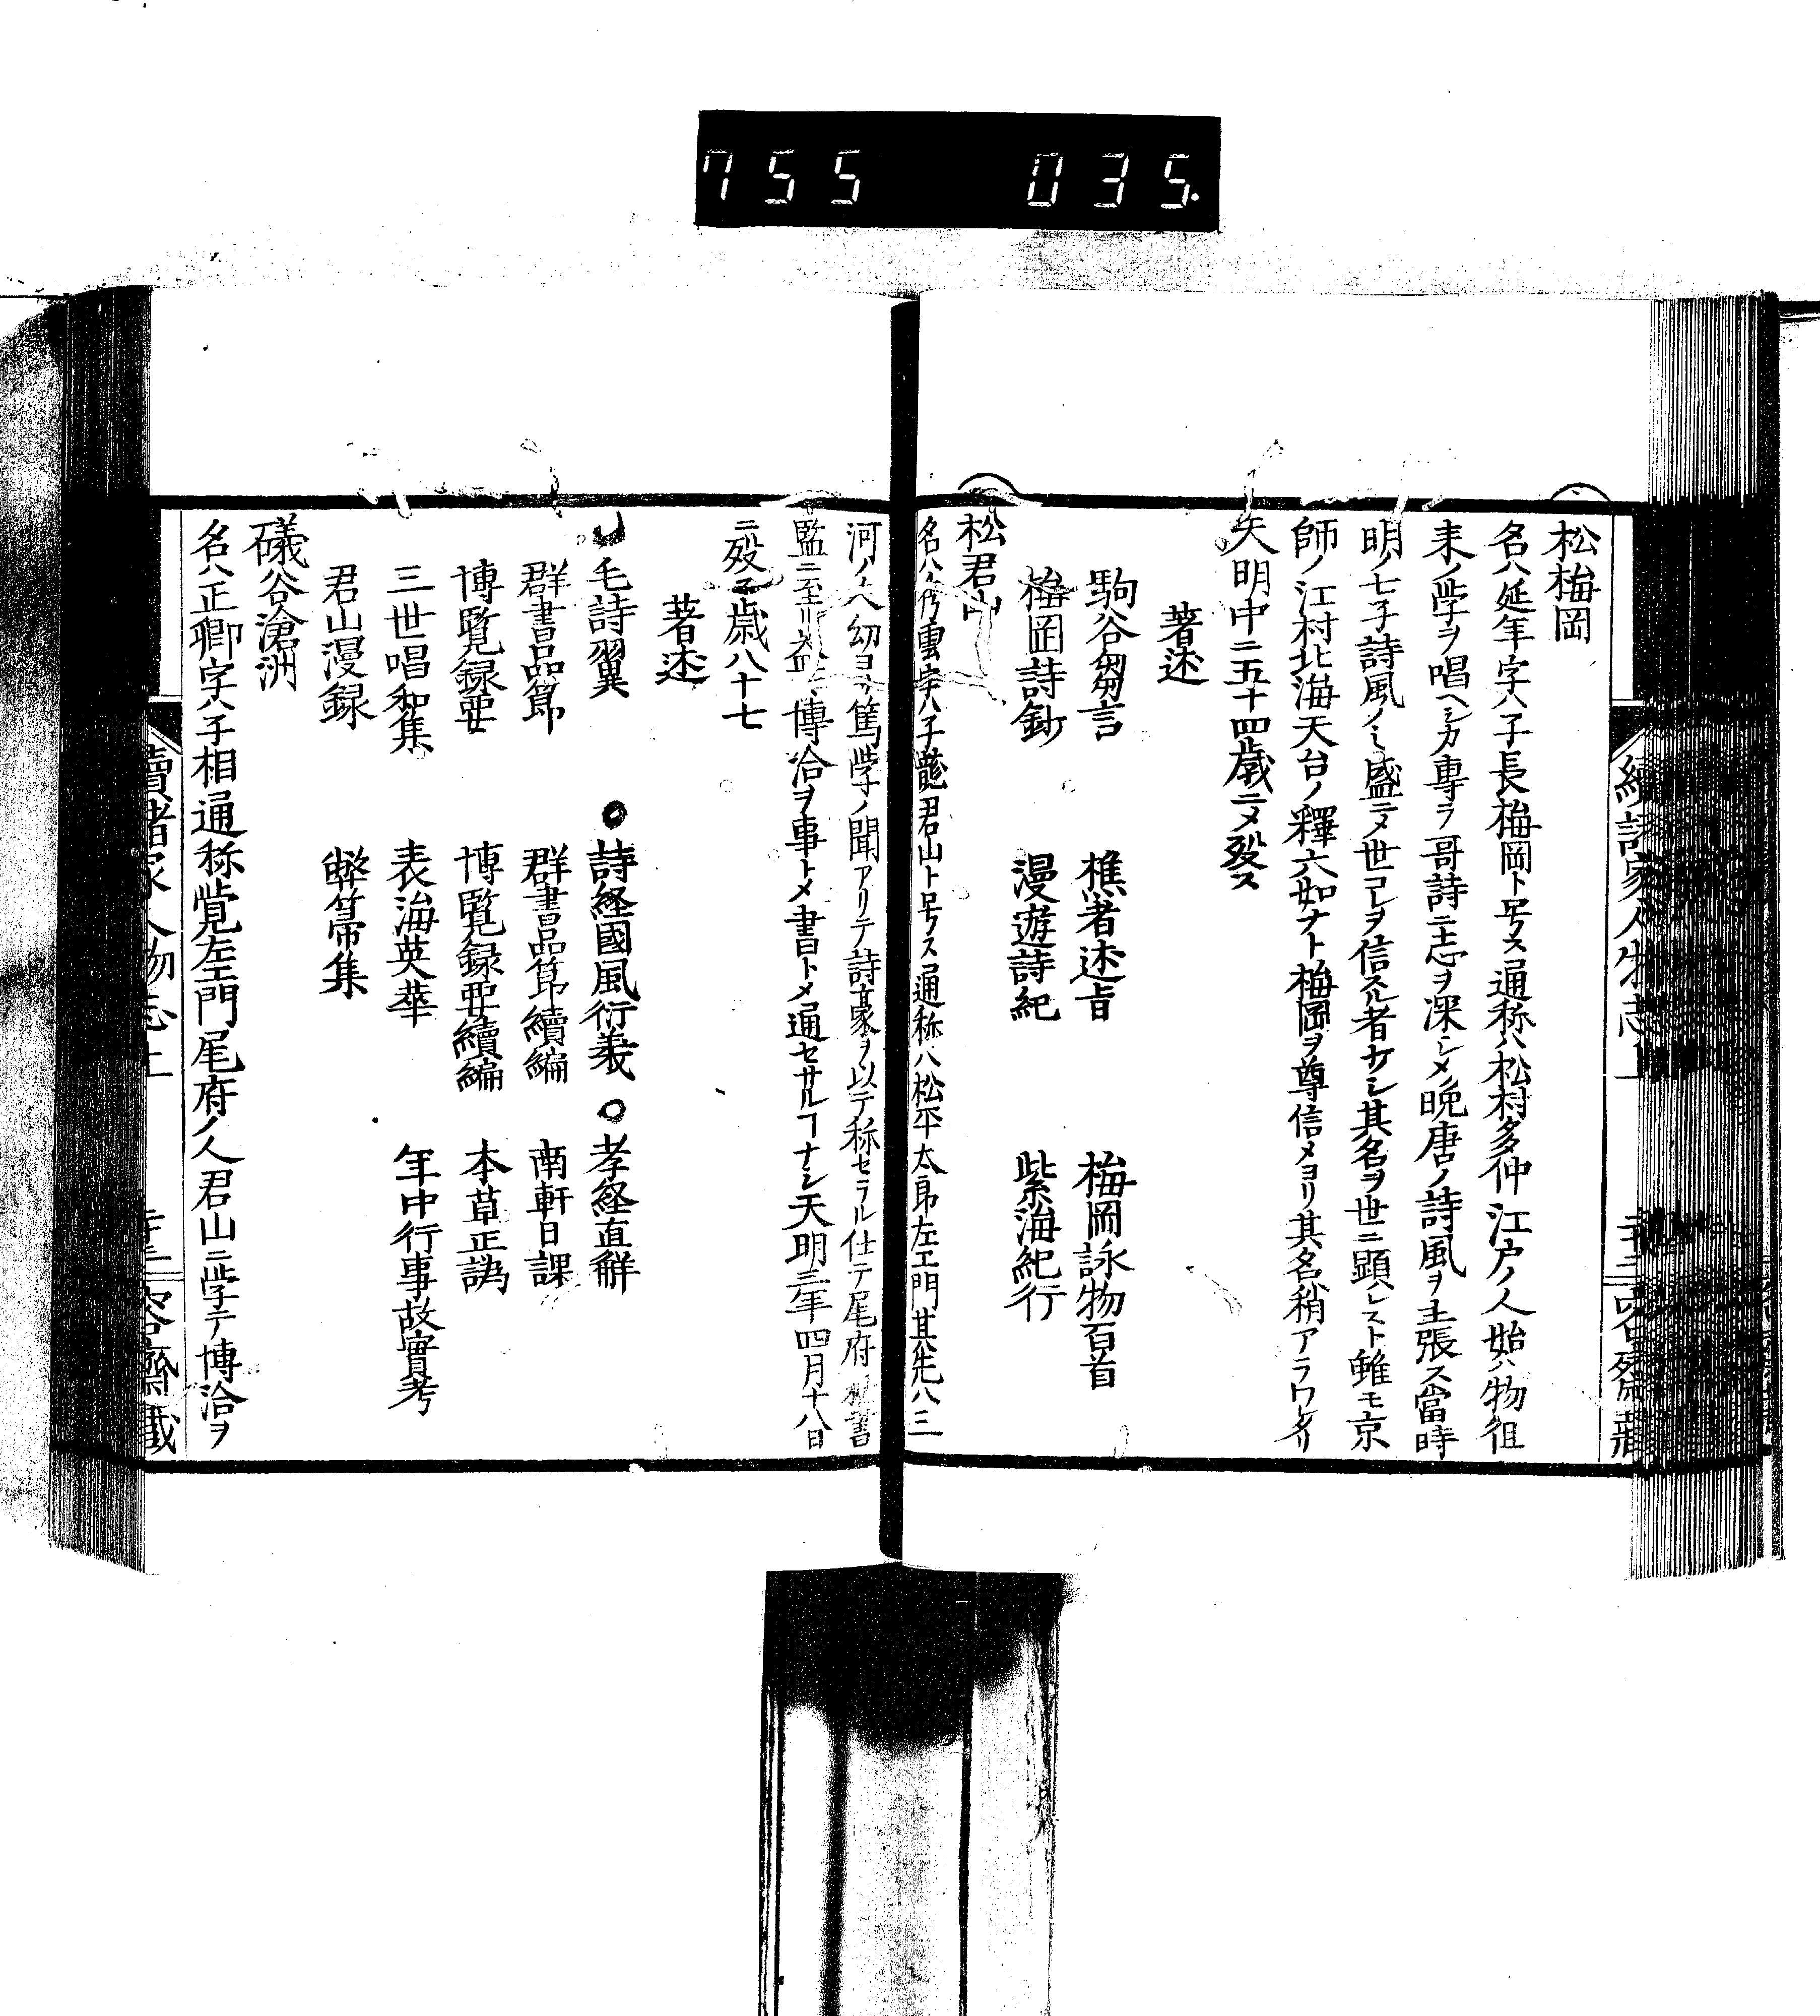 755 035.
續諸家人物志上
松梅岡
名ハ延年字ハ子長梅岡ト号ス通称ハ松村多仲江戸ノ人始ハ物徂
耒ノ學ヲ唱ヘシカ專ラ哥詩ニ志ヲ深シメ晩唐ノ詩風ヲ主張ス當時
明ノ七子詩風ノミ盛ニメ世コレヲ信スル者ナシ其名ヲ世ニ顕レスト雖モ京
師ノ江村北海天台ノ釋六如ナト梅岡ヲ尊信メヨリ其名稍アラワレタリ
天明中ニ五十四歳ニメ歿ス
著述
駒谷芻言 樵者述旨 梅岡詠物百首
梅岡詩鈔 漫遊詩紀 紫海紀行
松君山
名ハ秀雲字ハ子龍君山ト号ス通称ハ松平太郎左エ門其先ハ三
河ノ人幼ヨリ篤學ノ聞アリテ詩豪ヲ以テ称セラル仕テ尾府 書
監ニ至ル 博洽ヲ事トメ書トメ通セサルヿナシ天明三年四月十八日
ニ歿ス歳八十七
著述
毛詩翼 詩経國風衍義 孝経直觧
群書品節 群書品節續編 南軒日課
博覧録要 博覧録要續編 本草正譌
三世唱和集 表海英華 年中行事故實考
君山漫録 弊箒集
礒谷滄洲
名ハ正卿字ハ子相通称覚左エ門尾府ノ人君山ニ學テ博洽ヲ
續諸家人物志上 容齋藏